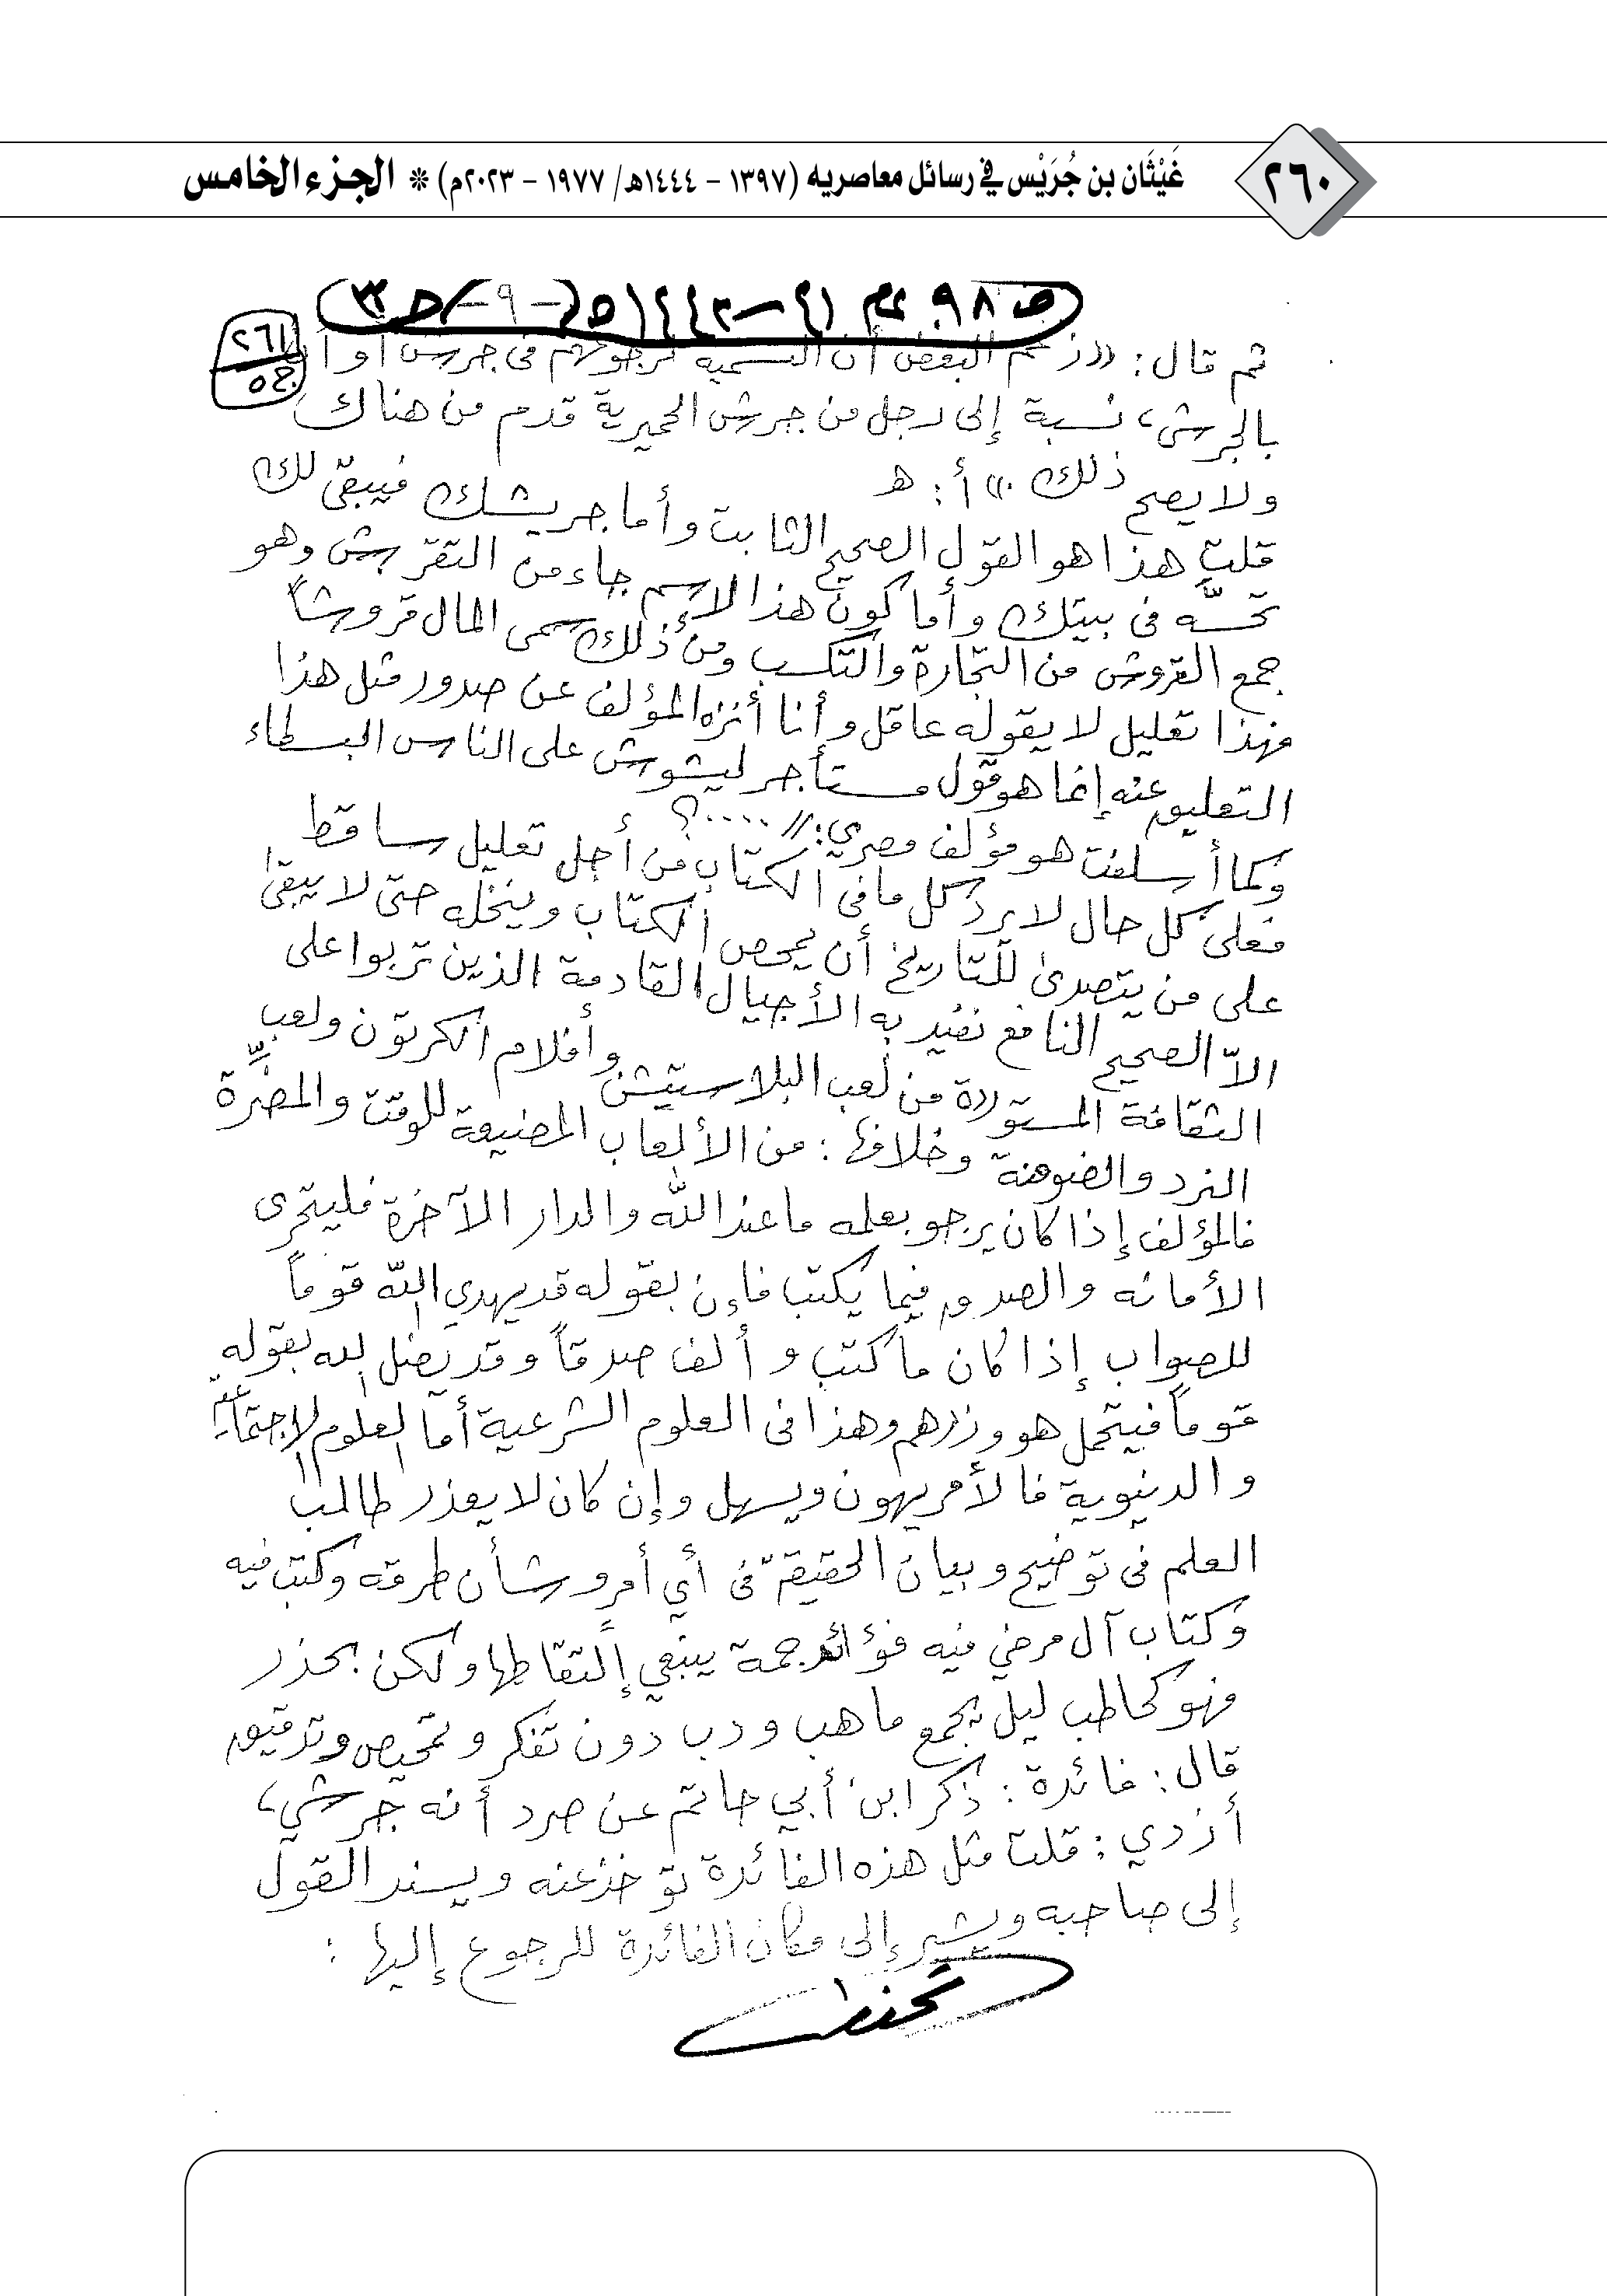 ٢٦٠
غَيْثَان بن جُرَيْس في رسائل معاصريه (١٣٩٧ - ١٤٤٤هـ/ ١٩٧٧ - ٢٠٢٣م) * الجزء الخامس
٢٦١
ج٥
ثم قال: «زعم البعض أن التسمية لرجوعهم في جرش أو
بالجرش، نسبة إلى رجل من جرش الحميرية قدم من هناك
ولا يصح ذلك.» أ: هـ
قلت هذا هو القول الصحيح الثابت وأما جريشك فيبقى لك
تحسّه في بيتك وأما كون هذا الاسم جاء من التقرّش وهو
جمع القروش من التجارة والتكسب ومن ذلك سمى المال قروشاً
فهذا تعليل لا يقوله عاقل وأنا أنزه المؤلف عن صدور مثل هذا
التعليق عنه إنما هو قول مستأجر ليشوش على الناس البسطاء
وكما أسلفت هو مؤلف مصري: // ....؟
فعلى كل حال لا يرد كل ما في الكتاب من أجل تعليل ساقط
على من يتصدى للتاريخ أن يمحص الكتاب وينخله حتى لا يبقى
الاّ الصحيح النافع نفيد به الأجيال القادمة الذين تربوا على
الثقافة المستوردة من لعب البلاستيشن وأفلام الكرتون ولعب
النرد والضومنة وخلافها: من الألعاب المضيعة للوقت والمضرّة
فالمؤلف إذا كان يرجو بعلمه ما عند الله والدار الآخرة فليتحرى
الأمانه والصدق فيما يكتب فإن بقوله قد يهدي الله قوماً
للصواب إذا كان ما كتب وألف صدقاً وقد يضل الله بقوله
قوماً فيتحمل هو وزرهم وهذا في العلوم الشرعية أما العلوم الاجتماعية
والدنيوية فالأمر يهون ويسهل وإن كان لا يعذر طالب
العلم في توضيح وبيان الحقيقة في أي أمر وشأن طرقه وكتب فيه
وكتاب آل مرضي فيه فوائد جمة ينبغي إلتقاطها ولكن بحذر
فهو كحاطب ليل يجمع ما هب ودب دون تفكر وتمحيص وتدقيق
قال: فائدة: ذكر ابن أبي حاتم عن صرد أنه جرشي،
أزدي: قلت مثل هذه الفائدة تؤخذ عنه ويسند القول
إلى صاحبه ويشير إلى مكان الفائدة للرجوع إليها: